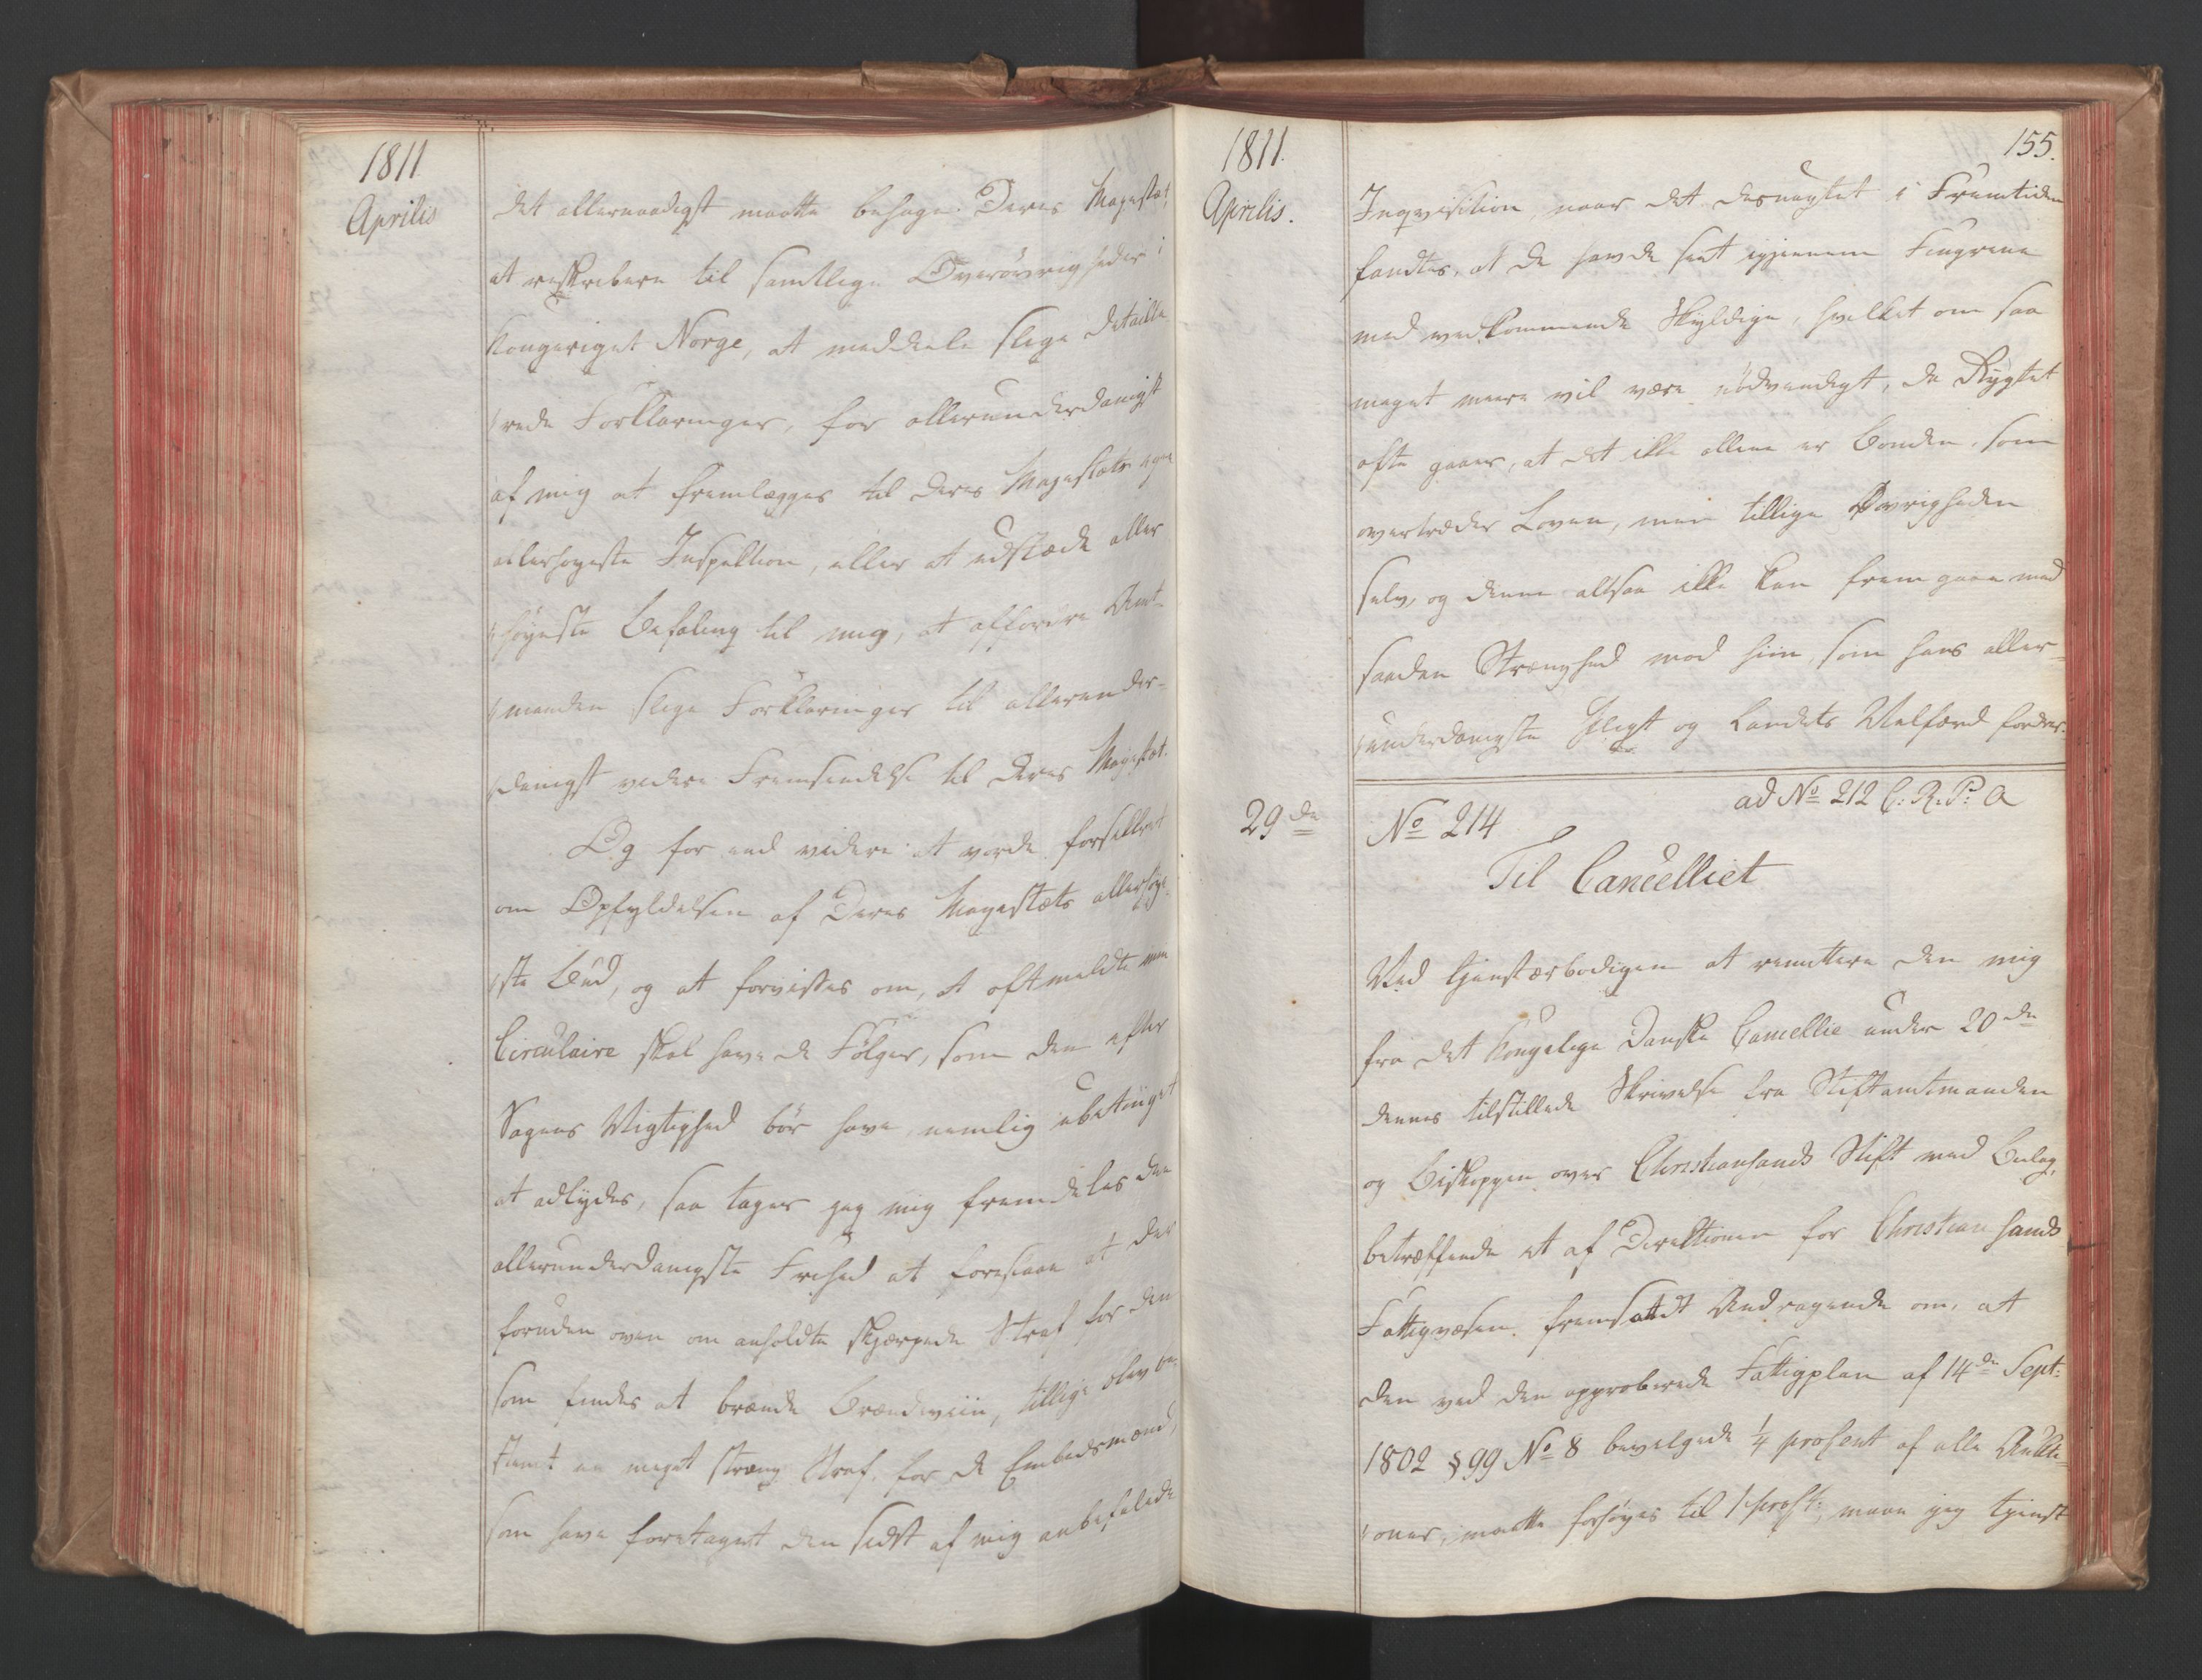 1811
Aprilis
det allernaadigst maatte behage Deres Majestæt,
at reskribere til samtlige Overøvrigheder i
Kongeriget Norge, at meddele slige detaille-
rede Forklaringer, for allerunderdanigst
af mig at fremlægges til Deres Majestæts egen
allerhøyeste Inspektion, eller at udstæde aller
høyeste Befaling til mig, at affordre Amt-
manden slige Forklaringer til allerunder-
danigst videre Fremsendelse til Deres Majestæt.
Og for end videre at vorde forsikkret
om Opfyldelsen af Deres Majestæts allerhøye-
ste Bud, og at forvisses om, at oftmeldte min
Circulaire skal have de Følger, som den efter
Sagens Vigtighed bør have, nemlig ubetinget
at adlydes, saa tager jeg mig fremdeles den
allerunderdanigste Frihed at foreslaae at der
foruden oven om anholdte skjærpede Straf for den
som findes at brænde Brændeviin, tillige blev be-
stemt en meget streng Straf for de Embedsmænd,
som have foretaget den sidst af mig anbefalede
1811.
Aprilis.
155.
Inqvisition, naar det desuagtet i Fremtiden
fandtes, at de havde seet igjennem Fingrene
med vedkommende Skyldige, hvilket om saa
meget meere vil være nødvendigt, da Rygtet
ofte gaaer, at det ikke allene er Bonden, som
overtræder Loven, men tillige Øvrigheden
selv, og denne altsaa ikke kan frem gaae med
saadan Strenghed mod hiin, som hans aller-
underdanigste Pligt og Landets Velfærd fordrer.
29de
No 214
ad No 212 C: R: P: A
Til Cancelliet
Ved tjenstærbødigen at remittere den mig
fra det Kongelige Danske Cancellie under 20de
dennes tilstillede Skrivelse fra Stiftamtmanden
og Biskoppen over Christiansands Stift med Bilag,
betræffende et af Direktionen for Christiansands
Fattigvæsen fremsatdt Andragende om, at
den ved den approberede Fattigplan af 14de Sept:
1802 § 99 No 8 bevilgede 1/4 prosent af alle Aukti-
oner, maatte forhøyes til 1 pros:t, maae jeg tjenst